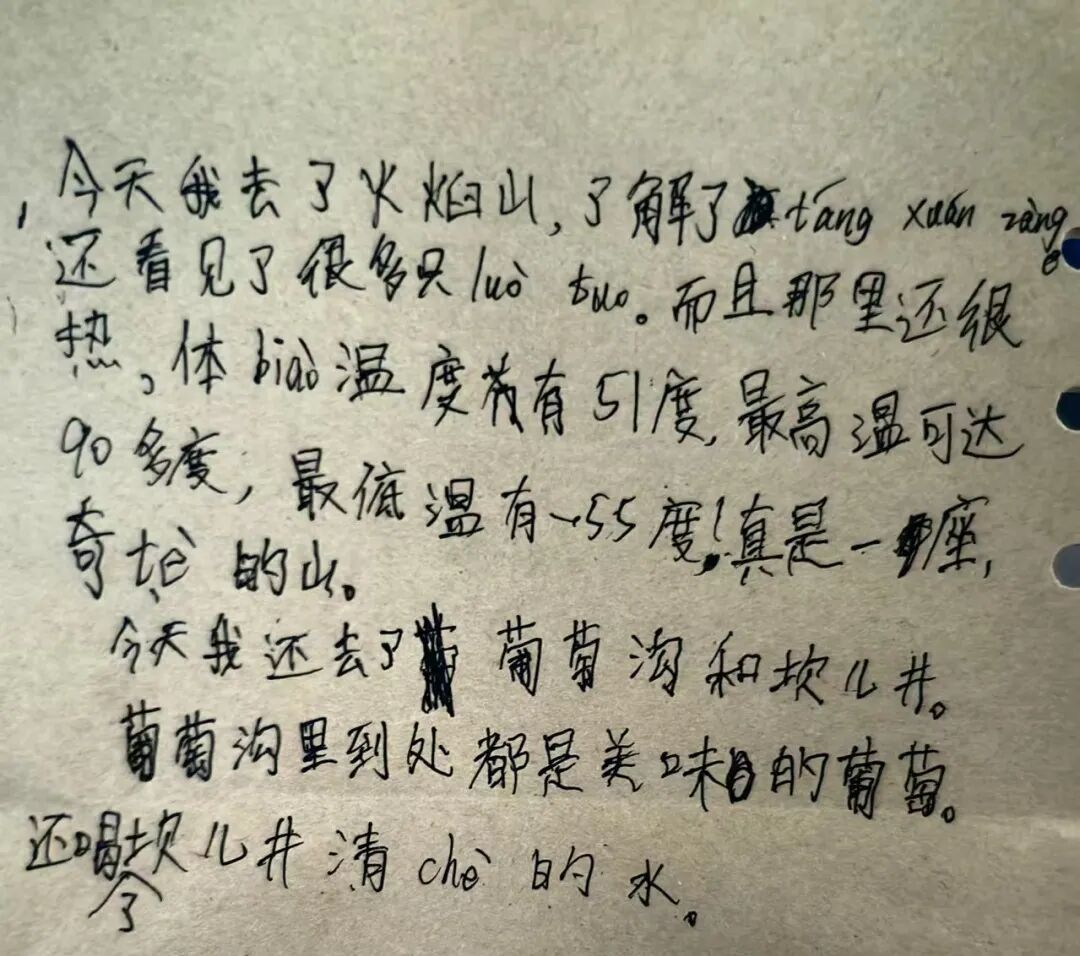 今天我去了火焰山,了解了táng xuán zàng。
还看见了很多只luò tuo。而且那里还很
热。体biǎo温度有51度,最高温可达
90多度,最低温有-55度!真是一座
奇tè的山。
今天我还去了葡萄沟和坎儿井。
葡萄沟里到处都是美味的葡萄。
还喝了坎儿井清chè的水。